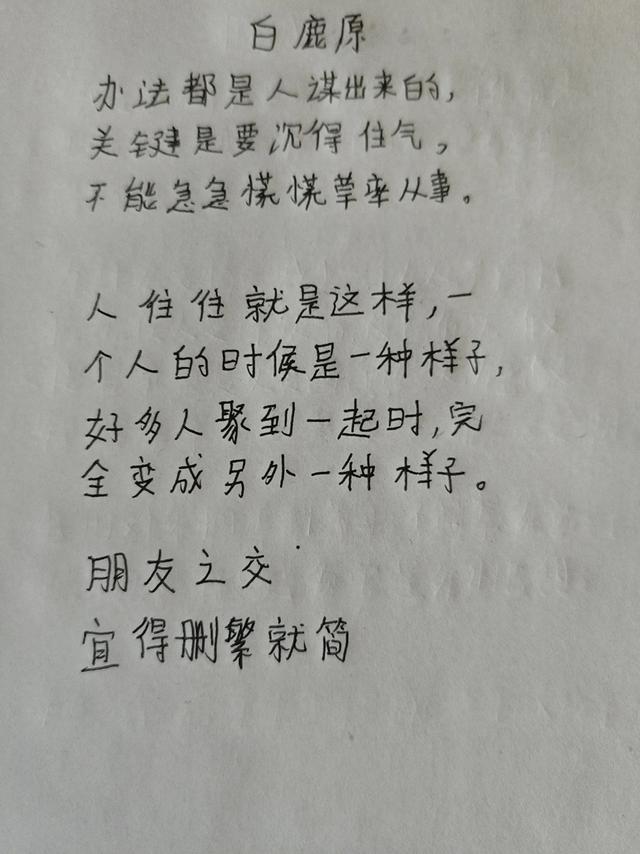 白鹿原
办法都是人谋出来的,
关键是要沉得住气,
不能急急慌慌草率从事。
人往往就是这样,一
个人的时候是一种样子,
好多人聚到一起时,完
全变成另外一种样子。
朋友之交
宜得删繁就简